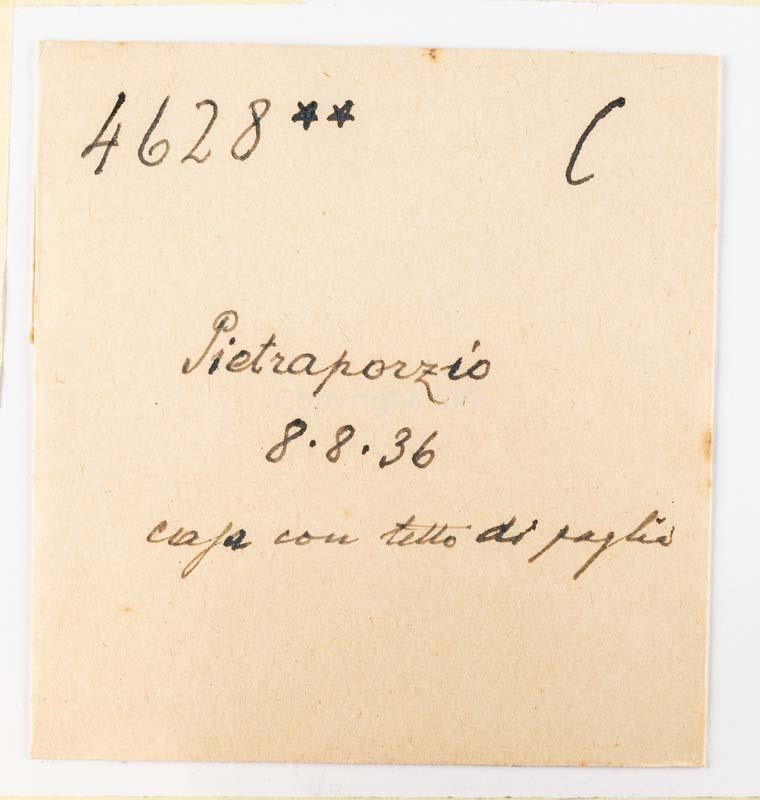 4628** C
Pietraporzio
8.8.36
casa con tetto di paglia